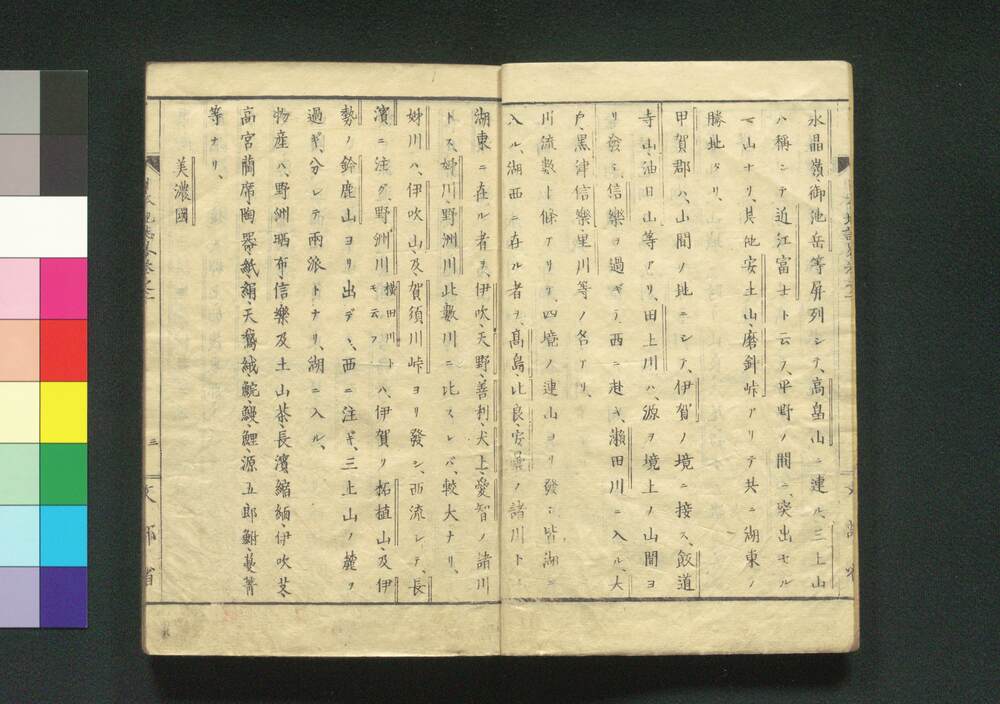 水晶嶺、御池岳等屏列シテ、高畠山ニ連ル、三上山
ハ稱シテ近江富士ト云フ、平野ノ間ニ突出セル
一山ナリ、其他安土山、磨針峠アリテ共ニ湖東ノ
勝地タリ、
甲賀郡ハ、山間ノ地ニシテ、伊賀ノ境ニ接ス、飯道
寺山油日山等アリ、田上川ハ、源ヲ境上ノ山間ヨ
リ發シ、信樂ヲ過ギテ、西ニ赴キ、瀬田川ニ入ル、大
戸、黒津、信樂、里川等ノ名アリ、
川流數十條アリ、四境ノ連山ヨリ發シ皆湖ニ
入ル、湖西ニ在ル者ヲ、高島、比良、安曇ノ諸川トシ、
湖東ニ在ル者ヲ、伊吹、天野、善利、犬上、愛智ノ諸川
トス、姉川、野洲川此數川ニ比スレバ、較大ナリ、
姉川ハ、伊吹山及賀須川峠ヨリ發シ、西流シテ、長
濱ニ注グ、野洲川横田川トモ云フハ、伊賀ノ柘植山、及伊
勢ノ鈴鹿山ヨリ出デヽ、西ニ注ギ、三上山ノ麓ヲ
過ギ、分レテ兩派トナリ、湖ニ入ル、
物産ハ、野洲晒布、信樂及土山茶、長濱縮緬、伊吹艾、
高宮蘭席、陶器、紙、絹、天鵞絨、鯇、鰻、鯉、源五郎鮒、蔓菁
等ナリ、
美濃國
三
文部省